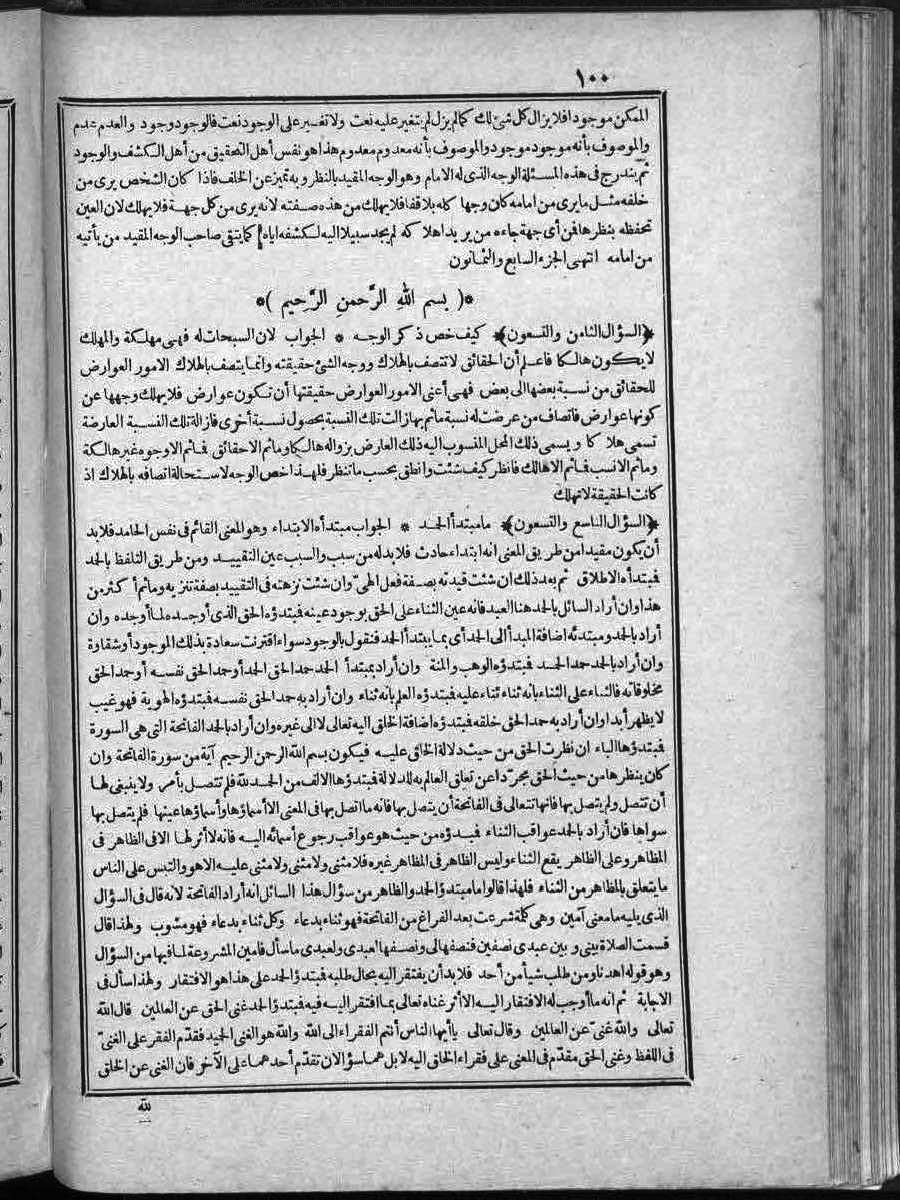 ١٠٠
الممكن موجودا فلا يزال كل شئ لك كما لم يزل لم يتغير عليه نعت ولا تغير على الوجود نعت فالوجود وجود والعدم عدم
والموصوف بأنه موجود موجود والموصوف بأنه معدوم معدوم هذا هو نفس أهل التحقيق من أهل الكشف والوجود
ثم يندرج فى هذه المسئلة الوجه الذى له الامام وهو الوجه المقيد بالنظر وبه تميز عن الخلف فاذا كان الشخص يرى من
خلفه مثل ما يرى من امامه كان وجها كله بلا قفا فلا يهلك من هذه صفته لانه يرى من كل جهة فلا يهلك لان العين
تحفظه بنظرها فمن أى جهة جاءه من يريد اهلاكه لم يجد سبيلا اليه لكشفه اياه كما يتقى صاحب الوجه المقيد من يأتيه
من امامه انتهى الجزء السابع والثمانون
*( بسم الله الرَّحمنِ الرَّحِيم )*
﴿السؤال الثامن والتسعون﴾ كيف خص ذكر الوجه * الجواب لان السبحات له فهى مهلكة والمهلك
لا يكون هالكا فاعلم أن الحقائق لا تتصف بالهلاك ووجه الشئ حقيقته وانما يتصف بالهلاك الامور العوارض
للحقائق من نسبة بعضها الى بعض فهى أعنى الامور العوارض حقيقتها أن تكون عوارض فلا يهلك وجهها عن
كونها عوارض فاتصاف من عرضت له نسبة ما ثم بها زالت تلك النسبة بحصول نسبة أخرى فازالة تلك النسبة العارضة
تسمى هلاكا ويسمى ذلك المحل المنسوب اليه ذلك العارض بزواله هالكا وما ثم الا حقائق فما ثم الا وجوه غير هالكة
وما ثم الا نسب فما ثم الا هالك فانظر كيف شئت وانطق بحسب ما تنظر فلهذا خص الوجه لاستحالة اتصافه بالهلاك اذ
كانت الحقيقة لا تهلك
﴿السؤال التاسع والتسعون﴾ ما مبتدأ الحمد * الجواب مبتدأه الابتداء وهو المعنى القائم فى نفس الحامد فلا بد
أن يكون مقيدا من طريق المعنى انه ابتداء حادث فلا بد له من سبب والسبب عين التقييد ومن طريق التلفظ بالحمد
فمبتدأه الاطلاق ثم بعد ذلك ان شئت قيدته بصفة فعل الهىّ وان شئت نزهته فى التقييد بصفة تنزيه وما ثم أكثر من
هذا وان أراد السائل بالحمد هنا العبد فانه عين الثناء على الحق بوجود عينه فمبتدؤه الحق الذى أوجده لما أوجده وان
أراد بالحمد ومبتدئه اضافة المبدأ الى الحمد أى بما يبتدأ الحمد فنقول بالوجود سواء اقترنت سعادة بذلك الموجود أو شقاوة
وان أراد بالحمد حمد الحمد فمبتدؤه الوهب والمنة وان أراد بمبتدأ الحمد حمد الحق الحمد أو حمد الحق نفسه أو حمد الحق
مخلوقاته فالثناء على الثناء بانه ثناء ثناء عليه فمبتدؤه العلم بانه ثناء وان أراد به حمد الحق نفسه فمبتدؤه الهوية فهو غيب
لا يظهر أبدا وان أراد به حمد الحق خلقه فمبتدؤه اضافة الخلق اليه تعالى لا الى غيره وان أراد بالحمد الفاتحة التى هى السورة
فمبتدؤها الباء ان نظرت الحق من حيث دلالة الخلق عليه فيكون بسم الله الرحمن الرحيم آية من سورة الفاتحة وان
كان ينظرها من حيث الحق مجرّدا عن تعلق العالم به للدلالة فمبتدؤها الالف من الحمد لله فلم تتصل بأمر ولا ينبغى لها
أن تتصل ولم يتصل بها فانها تتعالى فى الفاتحة أن يتصل بها فانه ما اتصل بها فى المعنى الا أسماؤها وأسماؤها عينها فلم يتصل بها
سواها فان أراد بالحمد عواقب الثناء فمبدؤه من حيث هو عواقب رجوع أسمائه اليه فانه لا أثر لها الا فى الظاهر فى
المظاهر وعلى الظاهر يقع الثناء وليس الظاهر فى المظاهر غيره فلا مثنى ولا مثنى ولا مثنى عليه الا هو والتبس على الناس
ما يتعلق بالمظاهر من الثناء فلهذا قالوا ما مبتدؤ الحمد والظاهر من سؤال هذا السائل انه أراد الفاتحة لانه قال فى السؤال
الذى يليه ما معنى آمين وهى كلمة شرعت بعد الفراغ من الفاتحة فهو ثناء بدعاء وكل ثناء بدعاء فهو مشوب ولهذا قال
قسمت الصلاة بينى وبين عبدى نصفين فنصفها لى ونصفها لعبدى ولعبدى ما سأل فآمين المشروعة لما فيها من السؤال
وهو قوله اهدنا ومن طلب شيأ من أحد فلا بد أن يفتقر اليه بحال طلبه فمبتدؤ الحمد على هذا هو الافتقار ولهذا سأل فى
الاجابة ثم انه ما أوجب له الافتقار اليه الا أثر غناه تعالى بما افتقر اليه فيه فمبتدؤ الحمد غنى الحق عن العالمين قال الله
تعالى والله غنىّ عن العالمين وقال تعالى يا أيها الناس أنتم الفقراء الى الله والله هو الغنى الحميد فقدّم الفقر على الغنىّ
فى اللفظ وغنى الحق مقدّم فى المعنى على فقراء الخلق اليه لا بل هما سؤالان تقدّم أحدهما على الآخر فان الغنى عن الخلق
لله